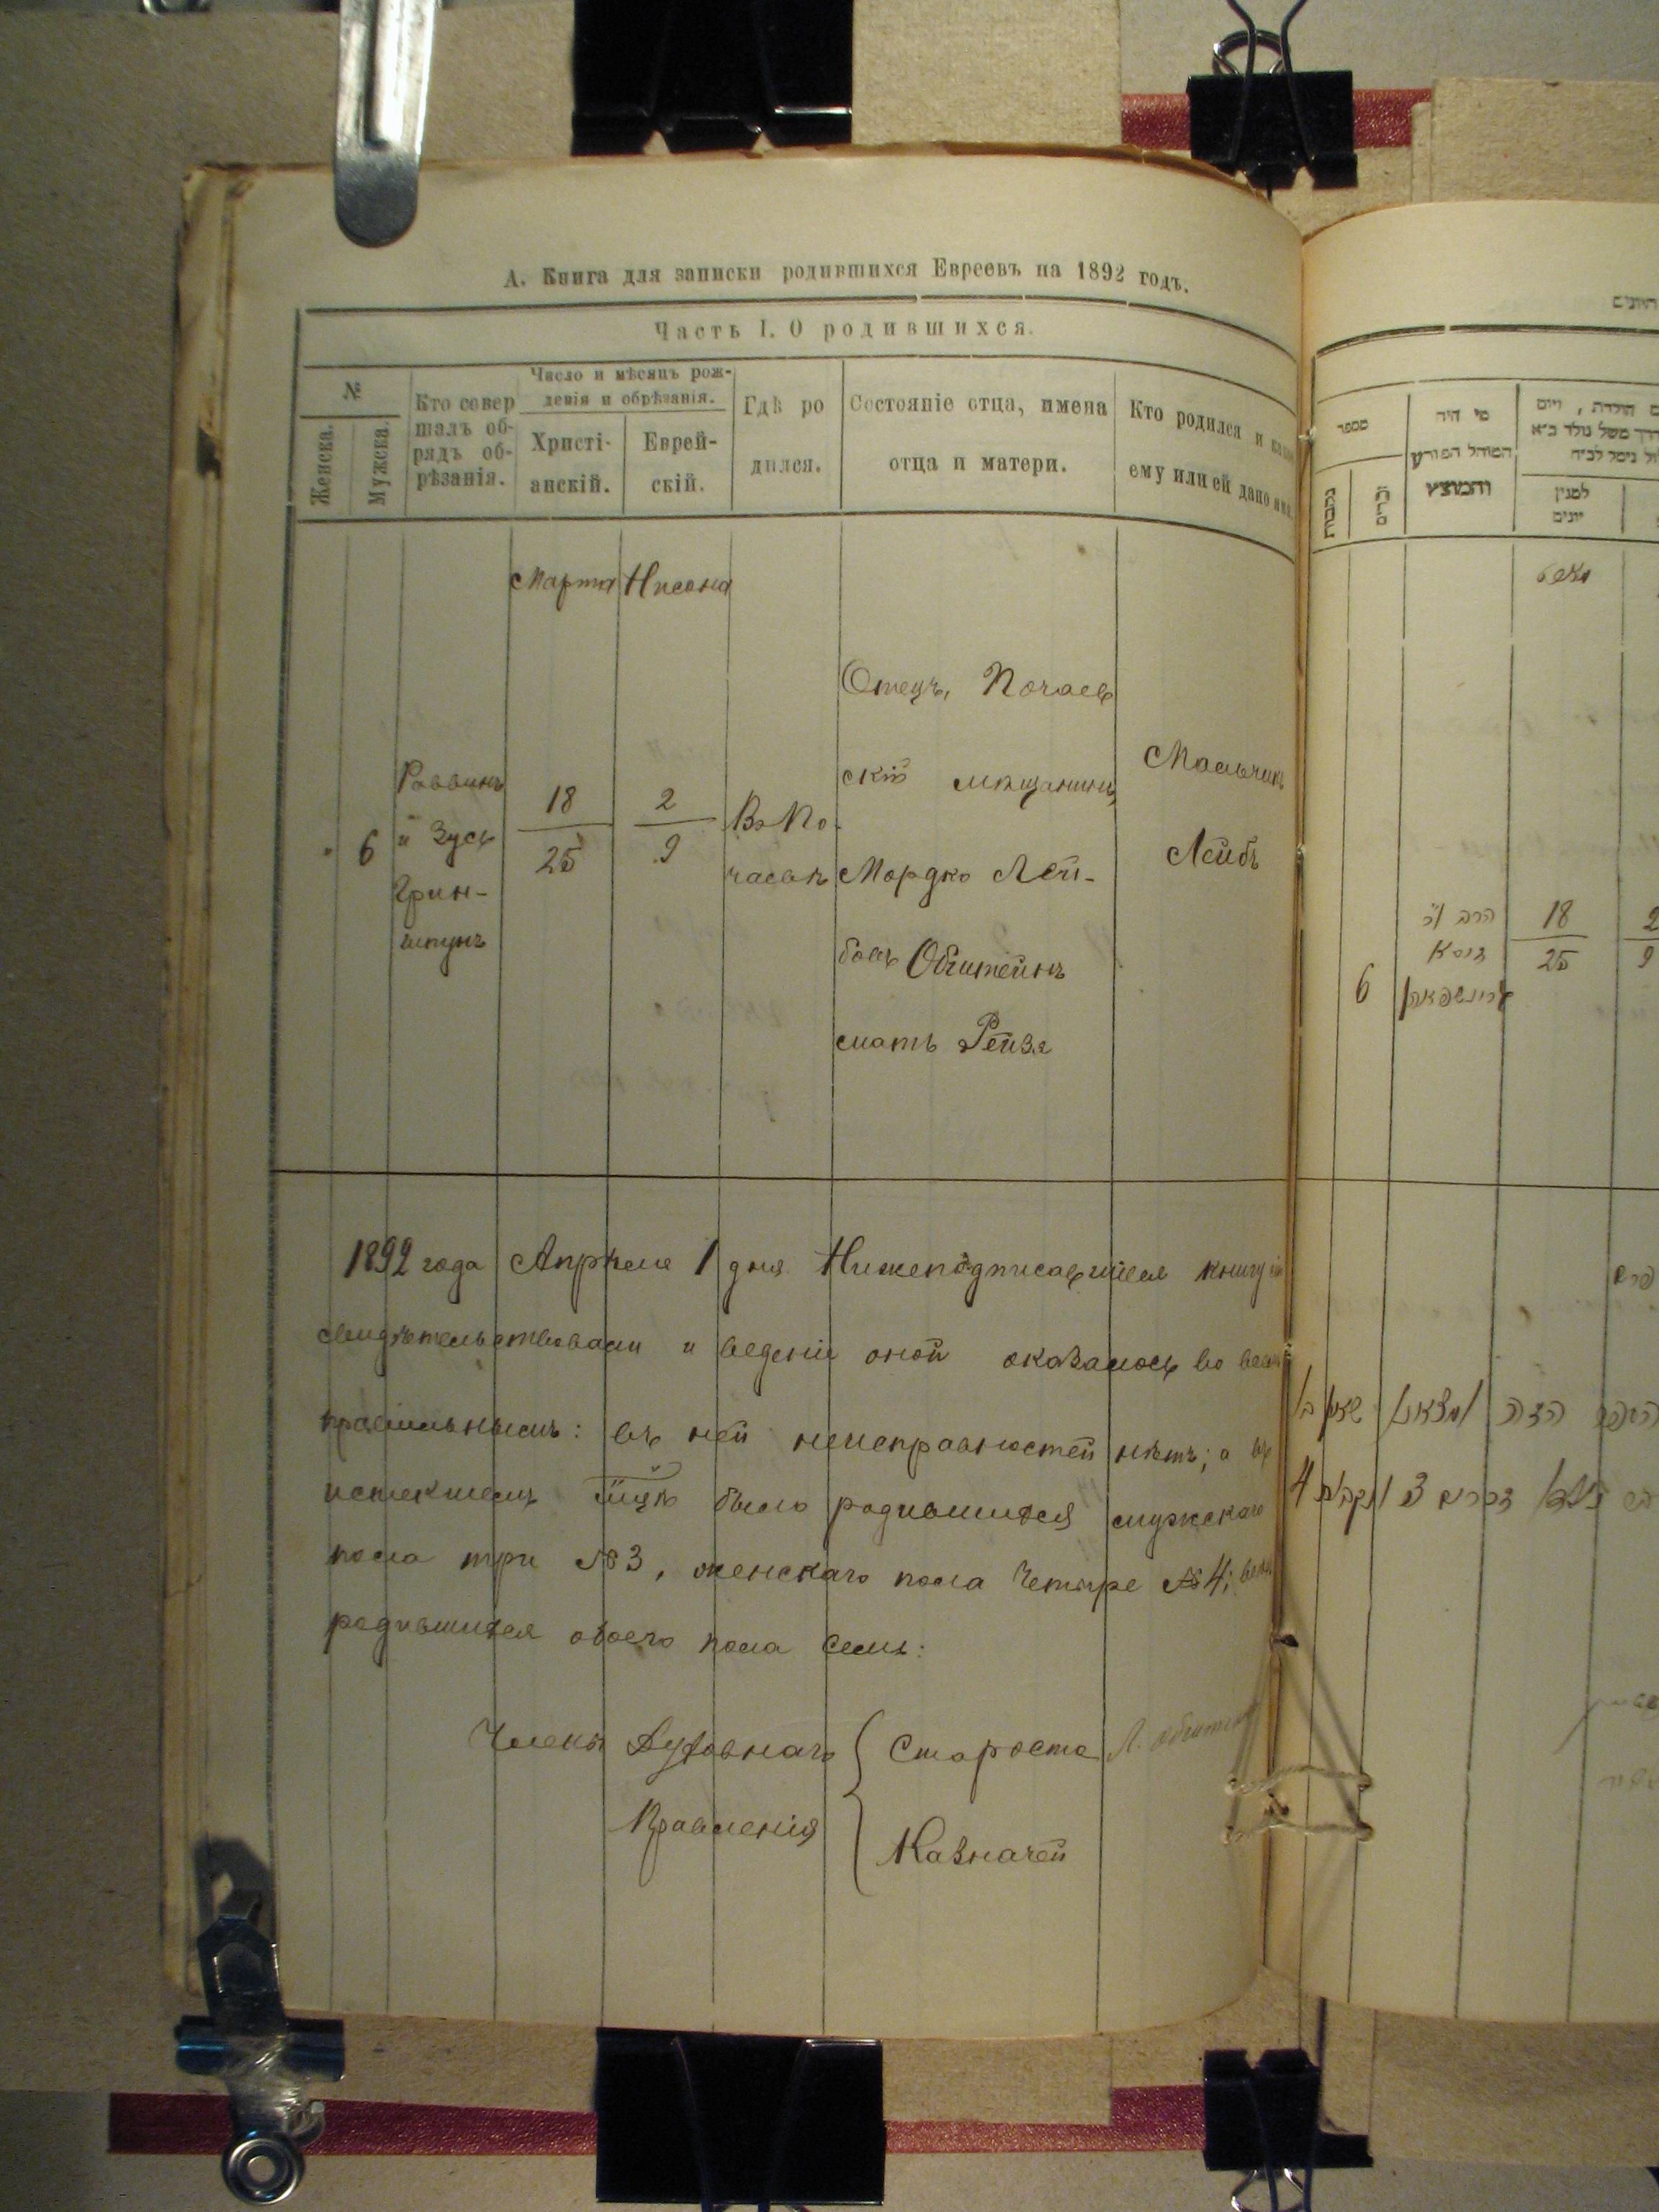 А. Книга для записки родившихся Евреевъ на 1892 годъ.
Часть I. О родившихся.
№
Женска.
Мужска.
Кто совер
шалъ об-
рядъ об-
рѣзанія.
Число и мѣсяцъ рож-
денія и обрѣзанія.
Христі-
анскій.
Еврей-
скій.
Гдѣ ро
дился.
Состояніе отца, имена
отца и матери.
Кто родился и какое
ему или ей дано имя.
Марта
Нисона
6
Раввинъ
и Зусь
Грин-
шпунъ
18
25
2
9
Въ По-
чаевѣ
Отецъ, Почаев
скій мѣщанинъ
Мордко Лей-
бовъ Обштейнъ
мать Рейзя
Мальчикъ
Лейбъ
1892 года Апрѣля 1 дня Нижеподписавшіеся книгу сію
свидѣтельствовали и веденіе оной оказалось во всемъ
правильнымъ: въ ней неисправностей нѣтъ; а въ
истекшемъ м-цѣ было родившихся мужскаго
пола три №3, женскаго пола четыре №4; всего
родившихся обоего пола семь:
Члены Духовнаго
Правленія
Староста
Казначей
מספר
נקבות
זכרים
מי היה
המוהל הפורע
והמוצץ
למנין
יונים
6
הרב
זוסא
גרינשפאהן
18
25
2
9